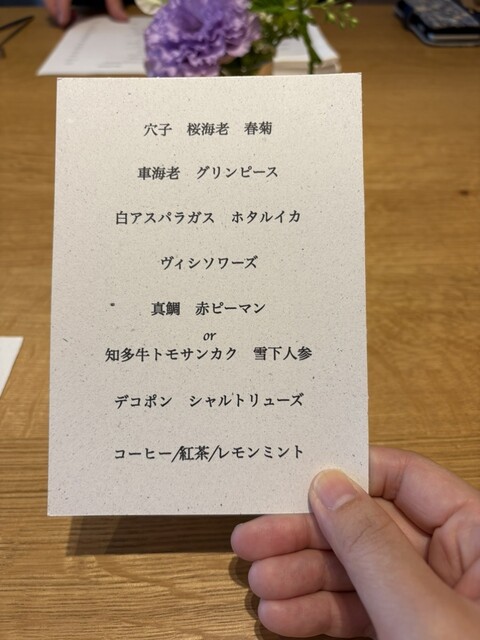 穴子　桜海老　春菊
車海老　グリンピース
白アスパラガス　ホタルイカ
ヴィシソワーズ
真鯛　赤ピーマン
or
知多牛トモサンカク　雪下人参
デコポン　シャルトリューズ
コーヒー/紅茶/レモンミント